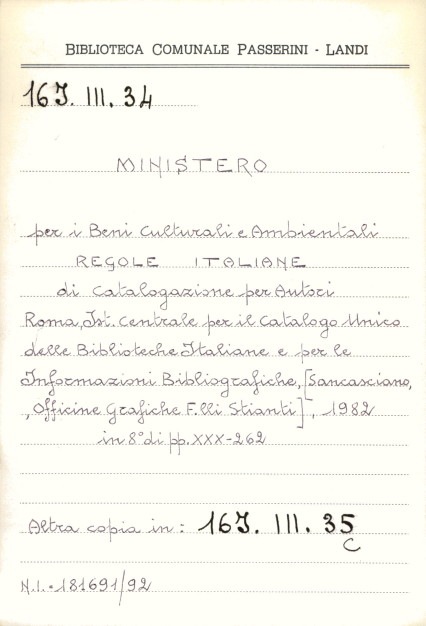 BIBLIOTECA COMUNALE PASSERINI - LANDI
16J. III. 34
MINISTERO
per i Beni Culturali e Ambientali
REGOLE ITALIANE
di Catalogazione per Autori
Roma, Ist. Centrale per il Catalogo Unico
delle Biblioteche Italiane e per le
Informazioni Bibliografiche, [Sancasciano,
, Officine Grafiche F.lli Stianti], 1982
in 8° di pp. XXX-262
Altra copia in: 16J. III. 35
C
N.I. - 181691/92